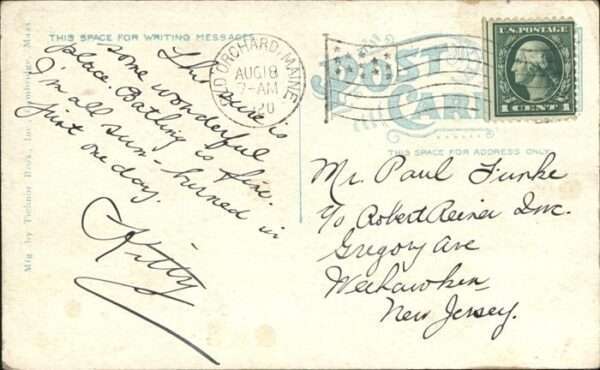 THIS SPACE FOR WRITING MESSAGES
This sure is
some wonderful
place. Bathing is fine.
I'm all sun-burned in
just one day.
Kitty
Mfg. by Tichnor Bros., Inc., Cambridge, Mass.
OLD ORCHARD, MAINE
AUG 18
7-AM
1920
POST
CARD
U.S. POSTAGE
1 CENT 1
THIS SPACE FOR ADDRESS ONLY.
Mr. Paul Funke
c/o Robert Reiner Inc.
Gregory Ave
Weehawken
New Jersey.